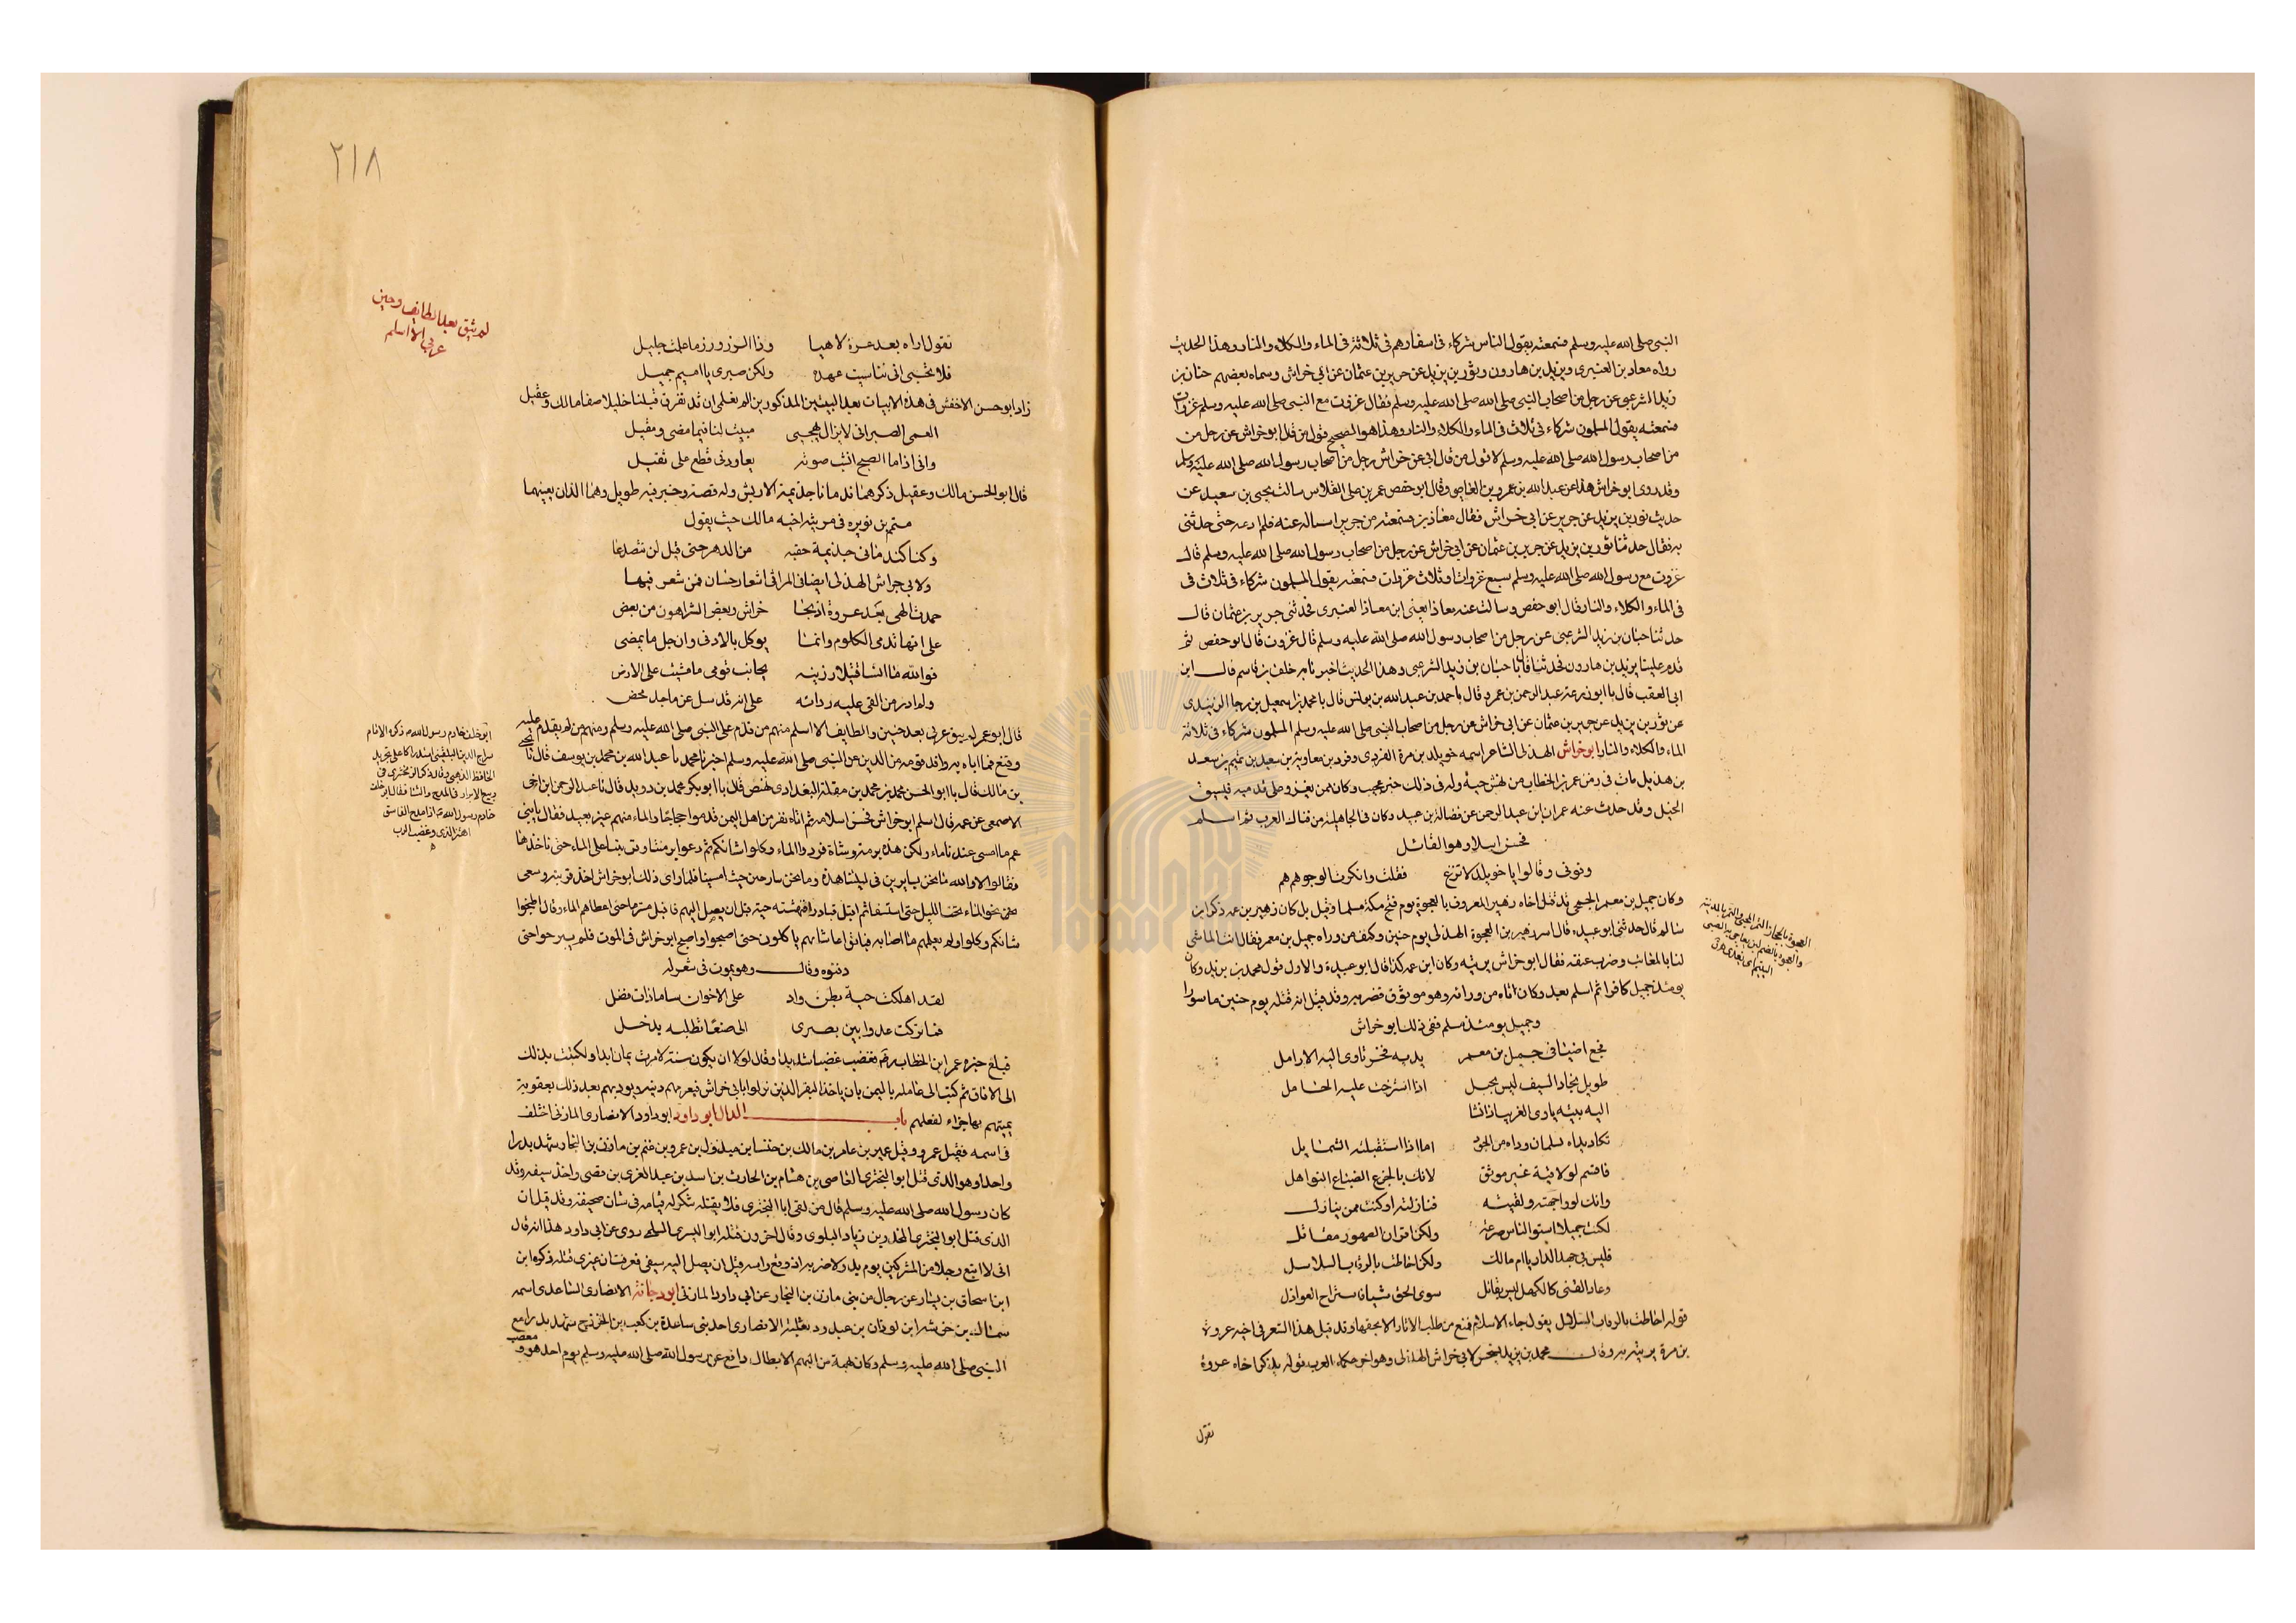 النبى صلى الله عليه وسلم فسمعته يقول الناس شركاء فى اسفارهم فى ثلاثة فى الماء والكلاء والنار وهذا الحديث
رواه معاذ بن العنبرى ويزيد بن هارون وثور بن يزيد عن حريز بن عثمان عن ابي خراش وسماه بعضهم حبان بن
زيد الشرعبى عن رجل من اصحاب النبى صلى الله عليه وسلم فقال غزوت مع النبى صلى الله عليه وسلم غزوات
فسمعته يقول المسلمون شركاء فى ثلاث فى الماء والكلاء والنار وهذا هو الصحيح قول من قال ابو خراش عن رجل من
من اصحاب رسول الله صلى الله عليه وسلم لا قول من قال ابى عن خراش رجل من اصحاب رسول الله صلى الله عليه وسلم
وقد روى ابو خراش هذا عن عبد الله بن عمرو بن العاصى وقال ابو حفص عمر بن على الفلاس سالت يحيى بن سعيد عن
حديث ثور بن يزيد عن حريز عن ابى خراش فقال معاذ بن سمعته من حريز اساله عنه فلم ادعه حتى حدثنى
به فقال حدثنا ثور بن يزيد عن حريز بن عثمان عن ابى خراش عن رجل من اصحاب رسول الله صلى الله عليه وسلم قال
غزوت مع رسول الله صلى الله عليه وسلم سبع غزوات او ثلاث غزوات فسمعته يقول المسلمون شركاء فى ثلاث فى
فى الماء والكلاء والنار قال ابو حفص وسالت عنه معاذا يعنى ابن معاذ العنبرى فحدثنى حريز بن عثمان قال
حدثنا حبان بن زيد الشرعبى عن رجل من اصحاب رسول الله صلى الله عليه وسلم قال غزوت قال ابو حفص ثم
قدم علينا يزيد بن هارون فحدثنا قال نا حبان بن زيد الشرعبى وهذا الحديث اخبرنا به خلف بن قاسم قال ابن
ابى العقب قال نا ابو زرعة عبد الرحمن بن عمرو قال نا احمد بن عبد الله بن يونس قال نا محمد بن اسمعيل بن رجا الزبيدى
عن ثور بن يزيد عن حريز بن عثمان عن ابى خراش عن رجل من اصحاب النبى صلى الله عليه وسلم المسلمون شركاء فى ثلاثة
الماء والكلاء والنار ابو خراش الهذلى الشاعر اسمه خويلد بن مرة القردى وقرد بن معاوية بن سعيد بن تميم بن سعد
بن هذيل مات فى زمن عمر بن الخطاب من نهش حية وله فى ذلك خبر عجيب وكان ممن يغزو على قدميه فيسبق
الخيل وقد حدث عنه عمران ابن عبد الرحمن عن فضالة بن عبيد وكان فى الجاهلية من فتاك العرب ثم اسلم
فحسن اسلامه وهو القائل
رفونى وقالوا يا خويلد لا ترع فقلت وانكرت الوجوه هم هم
وكان جميل بن معمر الجمحى قد قتل اخاه زهير المعروف بالعجوة يوم فتح مكة مسلما وقيل بل كان زهير بن عمه ذكر ابن
سالم قال حدثنى ابو عبيدة قال اسر زهير بن العجوة الهذلى يوم حنين وكتف من وراه جميل بن معمر فقال انت الماشى
لنا بالمغائب وضرب عنقه فقال ابو خراش يرثيه وكان ابن عمه كذا قال ابو عبيدة والاول قول محمد بن يزيد وكان
يومئذ جميل كافرا ثم اسلم بعد وكان اتاه من ورائه وهو موثوق فضربه وقد قيل انه قتله يوم حنين ماسورا
وجميل يومئذ مسلم ففى ذلك ابو خراش
فجع اضيافى جميل بن معمر بذى فخر تاوى اليه الارامل
طويل نجاد السيف ليس بجمل اذا استرخت عليه الحمامل
اليه بيته ياوى الغريب اذا شتا
تكاد يداه تسلمان رداه من الجود اما اذا استقبلته الشمايل
فاقسم لو لاقيته غير موثق لابك بالجزع الضباع النواهل
وانك لو واجهته ولقيته فنازلته او كنت ممن ينازل
لكنت جميلا اسوا الناس صرعة ولكن اقران الصهور مقاتل
فليس كعهد الدار يا ام مالك ولكن احاطت بالرقاب السلاسل
وعاد الفتى كالكهل ليس بقائل سوى الحق شيا فاستراح العواذل
قوله احاطت بالرقاب السلاسل يقول جاء الاسلام فمنع من طلب الاثار الا بحقها وقد قيل هذا الشعر فى اخيه عروة
بن مرة يرثيه به وقال محمد بن يزيد لابى خراش الهذلى وهو احد حكماء العرب قوله يذكر اخاه عروة
تقول
العجوة بالحجاز التمر
٢١٨
لم يبق بعد الطايف وحنين
عربى الا اسلم
تقول اراه بعد عروة لاهيا وذا الرزؤ رزء ما علمت جليل
فلا تحسبى انى تناسيت عهده ولكن صبرى يا اميم جميل
زاد ابو حسن الاخفش فى هذه الابيات بعد البيتين المذكورين الم تعلمى ان قد تفرق قبلنا خليلا صفا مالك وعقيل
ابى الصبر انى لا يزال يهيجنى مبيت لنا فيما مضى ومقيل
وانى اذا ما الصبح انست ضوئه يعاودنى قطع على ثقيل
قال ابو الحسن مالك وعقيل ذكرهما ندمانا جذيمة الابرش وله قصة وخبر فيه طويل وهما اللذان يعنيهما
متمم بن نويره فى مرثية اخيه مالك حيث يقول
وكنا كندمانى جذيمة حقبه من الدهر حتى قيل لن نتصدعا
ولابى خراش الهذلى ايضا فى المراثى اشعار حسان فمن شعره فيها
حمدت الهى بعد عروة اذ نجا خراش وبعض الشر اهون من بعض
على انها تدمى الكلوم وانما يوكل بالادنى وان جل ما يمضى
فوالله ما انسا قتيلا رزيته بجانب قوسى ما مشيت على الارض
ولم ادر من القى عليه ردائه على انه قد سل عن ماجد محض
قال ابو عمر لم يبق عربى بعد حنين والطايف الا اسلم منهم من قدم على النبى صلى الله عليه وسلم ومنهم من لم يقدم عليه
وقنع بما اتاه به وافد قومه من الدين عن النبى صلى الله عليه وسلم اخبرنا محمد نا عبد الله بن محمد بن يوسف قال نا يحيى
بن مالك قال نا ابو الحسن محمد بن محمد بن مقلة البغدادى بمصر قال نا ابو بكر محمد بن دريد قال نا عبد الرحمن ابن اخى
الاصمعى عن عمه قال اسلم ابو خراش فحسن اسلامه ثم اتاه نفر من اهل اليمن قدموا حجاجا والماء منهم غير بعيد فقال يابنى
عم ما امسى عندنا ماء ولكن هذه برمة وشاة فردوا الماء وكلوا شاتكم ثم دعوا برمتنا وقربتنا على الماء حتى ناخذها
فقالوا لا والله ما نحن بسايرين فى ليلتنا هذه وما نحن ببارحين حيث امسينا فلما راى ذلك ابو خراش اخذ قربته وسعى
نحو الماء تحت الليل حتى استسقا ثم اقبل صادرا فنهشته حية قبل ان يصل اليهم فاقبل مسرعا حتى اعطاهم الماء وقال اطبخوا
شاتكم وكلوا ولم يعلمهم ما اصابه فباتوا على شاتهم ياكلون حتى اصبحوا واصبح ابو خراش فى الموت فلم يبرحوا حتى
دفنوه وقال وهو يموت فى شعر له
لقد اهلكت حية بطن واد على الاخوان ساقا ذات فضل
فما تركت عدوا بين بصرى الى صنعا تطلبه بدخل
فبلغ خبره عمر ابن الخطاب رضه فغضب غضبا شديدا وقال لولا ان يكون سنة لامرت يمان ابدا ولكتبت بذلك
الى الافاق ثم كتب الى عامله باليمن بان ياخذ النفر الذين نزلوا بابى خراش فيغرمهم ديته ويوديهم بعد ذلك بعقوبة
يمسهم بها جزاء لفعلهم باب الدال ابو داود ابو داود الانصارى المازنى اختلف
فى اسمه فقيل عمرو وقيل عمير بن عامر بن مالك بن خنسا بن مبذول بن عمرو بن غنم بن مازن بن النجار شهد بدرا
واحدا وهو الذى قتل ابو البخترى العاصى بن هشام بن الحارث بن اسد بن عبد العزى بن قصى واخذ سيفه وقد
كان رسول الله صلى الله عليه وسلم قال من لقى ابا البخترى فلا يقتله شكر له قيامه فى شان صحيفة وقد قيل ان
الذى قتل ابو البخترى المجذر بن زياد البلوى وقال اخرون قتله ابو اليسر السلمى روى عن ابى داود هذا انه قال
انى لاتبع رجلا من المشركين يوم بدر لاضربه اذ وقع راسه قبل ان يصل اليه سيفى فعرفت ان غيرى قتله ذكره ابن
ابن اسحاق بن يسار عن رجال من بنى مازن بن النجار عن ابى داود المازنى ابو دجانة الانصارى الساعدى اسمه
سماك بن خرشه ابن لوذان بن عبد ود بن ثعلبة الانصارى احد بنى ساعدة بن كعب بن الخزرج شهد بدرا مع
النبى صلى الله عليه وسلم وكان بهمة من البهم الابطال دافع عن رسول الله صلى الله عليه وسلم يوم احد هو و مصعب
ابو خلف خادم رسول الله ذكره الامام
سراج الدين البلقينى استدراكا على تجريد
الحافظ الذهبى وقال ذكر الزمخشرى فى
ربيع الابرار فى المدح والثنا فقال ابو خلف
خادم رسول الله اذا مدح الفاسق
اهتز العرش وغضب الرب